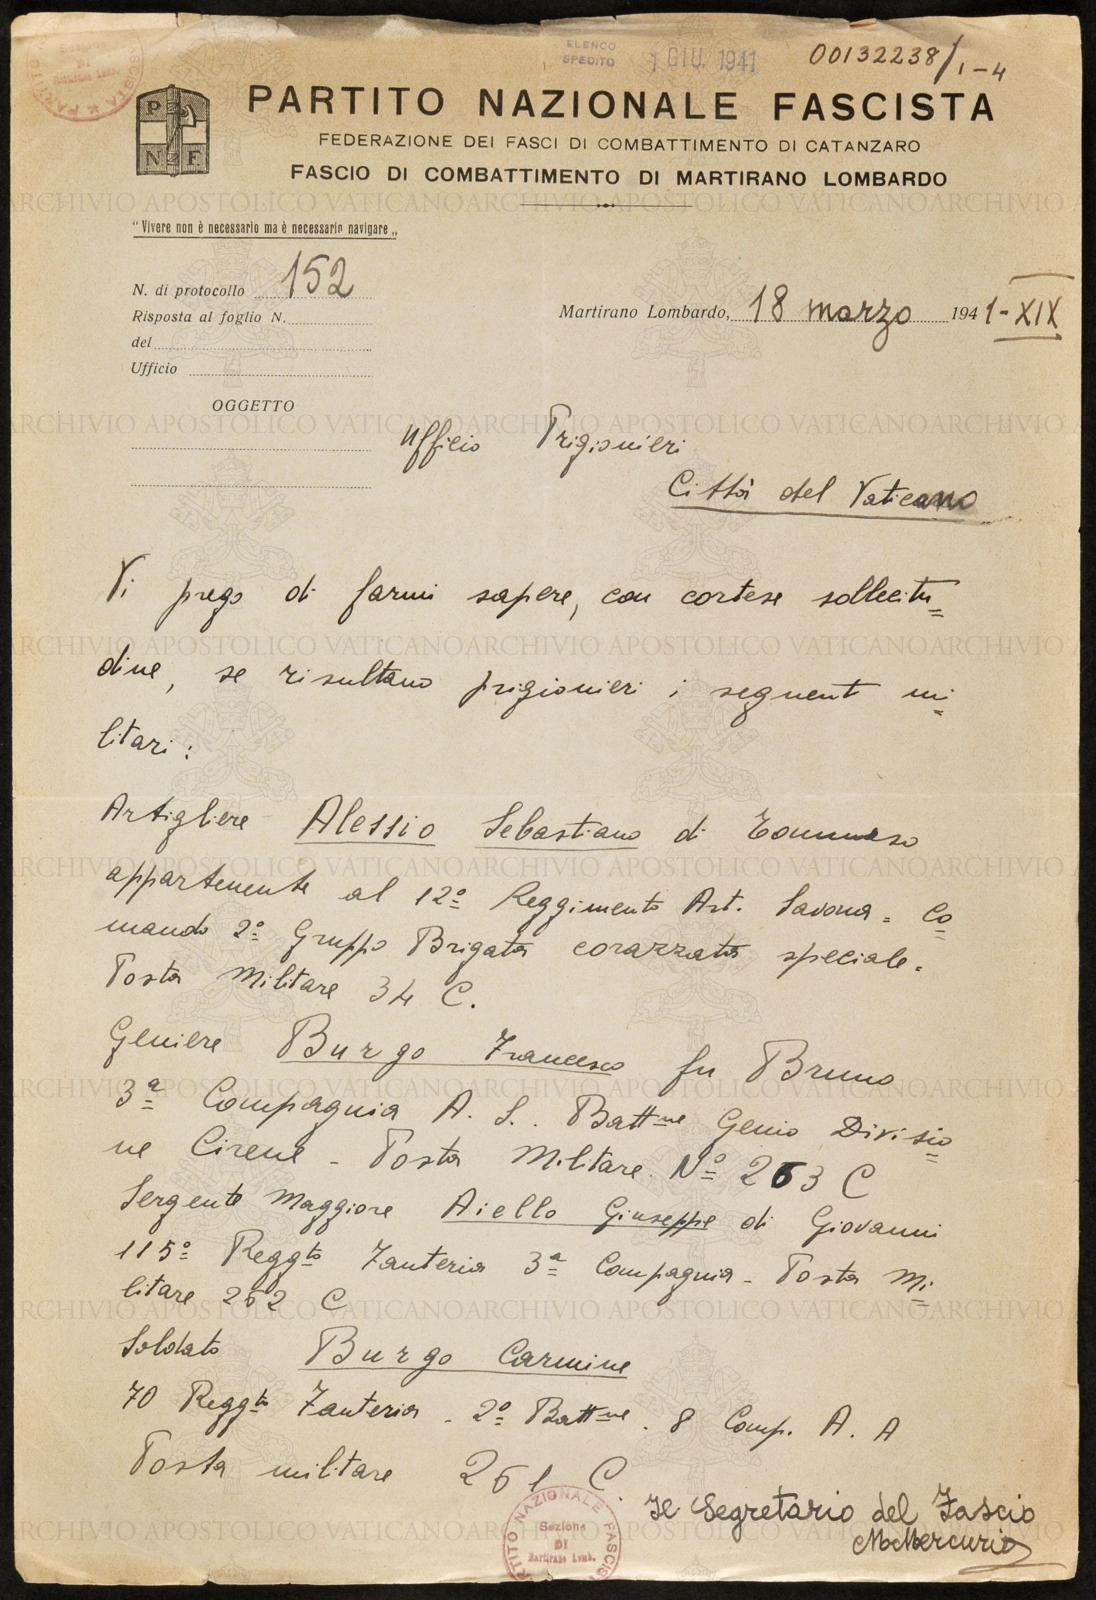 ELENCO
SPEDITO
1 GIU. 1941
00132238/1-4
P N F
PARTITO NAZIONALE FASCISTA
FEDERAZIONE DEI FASCI DI COMBATTIMENTO DI CATANZARO
FASCIO DI COMBATTIMENTO DI MARTIRANO LOMBARDO
"Vivere non è necessario ma è necessario navigare„
N. di protocollo 152
Risposta al foglio N.
del
Ufficio
Martirano Lombardo, 18 marzo 1941-XIX
OGGETTO
Ufficio Prigionieri
Città del Vaticano
Vi prego di farmi sapere, con cortese sollecitu=
dine, se risultano prigionieri i seguenti mi=
litari:
Artigliere Alessio Sebastiano di Tommaso
appartenente al 12º Reggimento Art. Savona = Co=
mando 2º Gruppo Brigata corazzata speciale.
Posta Militare 34 C.
Geniere Burgo Francesco fu Bruno
3ª Compagnia A. S. Battne Genio Divisio=
ne Cirene - Posta Militare Nº 263 C
Sergente Maggiore Aiello Giuseppe di Giovanni
115º Reggto Fanteria 3ª Compagnia - Posta Mi=
litare 262 C
Soldato Burgo Carmine
70 Reggto Fanteria - 2º Battne - 8 Comp. A. A
Posta militare 261 C.
Il Segretario del Fascio
MMercurio
PARTITO NAZIONALE FASCISTA
Sezione
DI
Martirano Lomb.
ARCHIVIO APOSTOLICO VATICANO